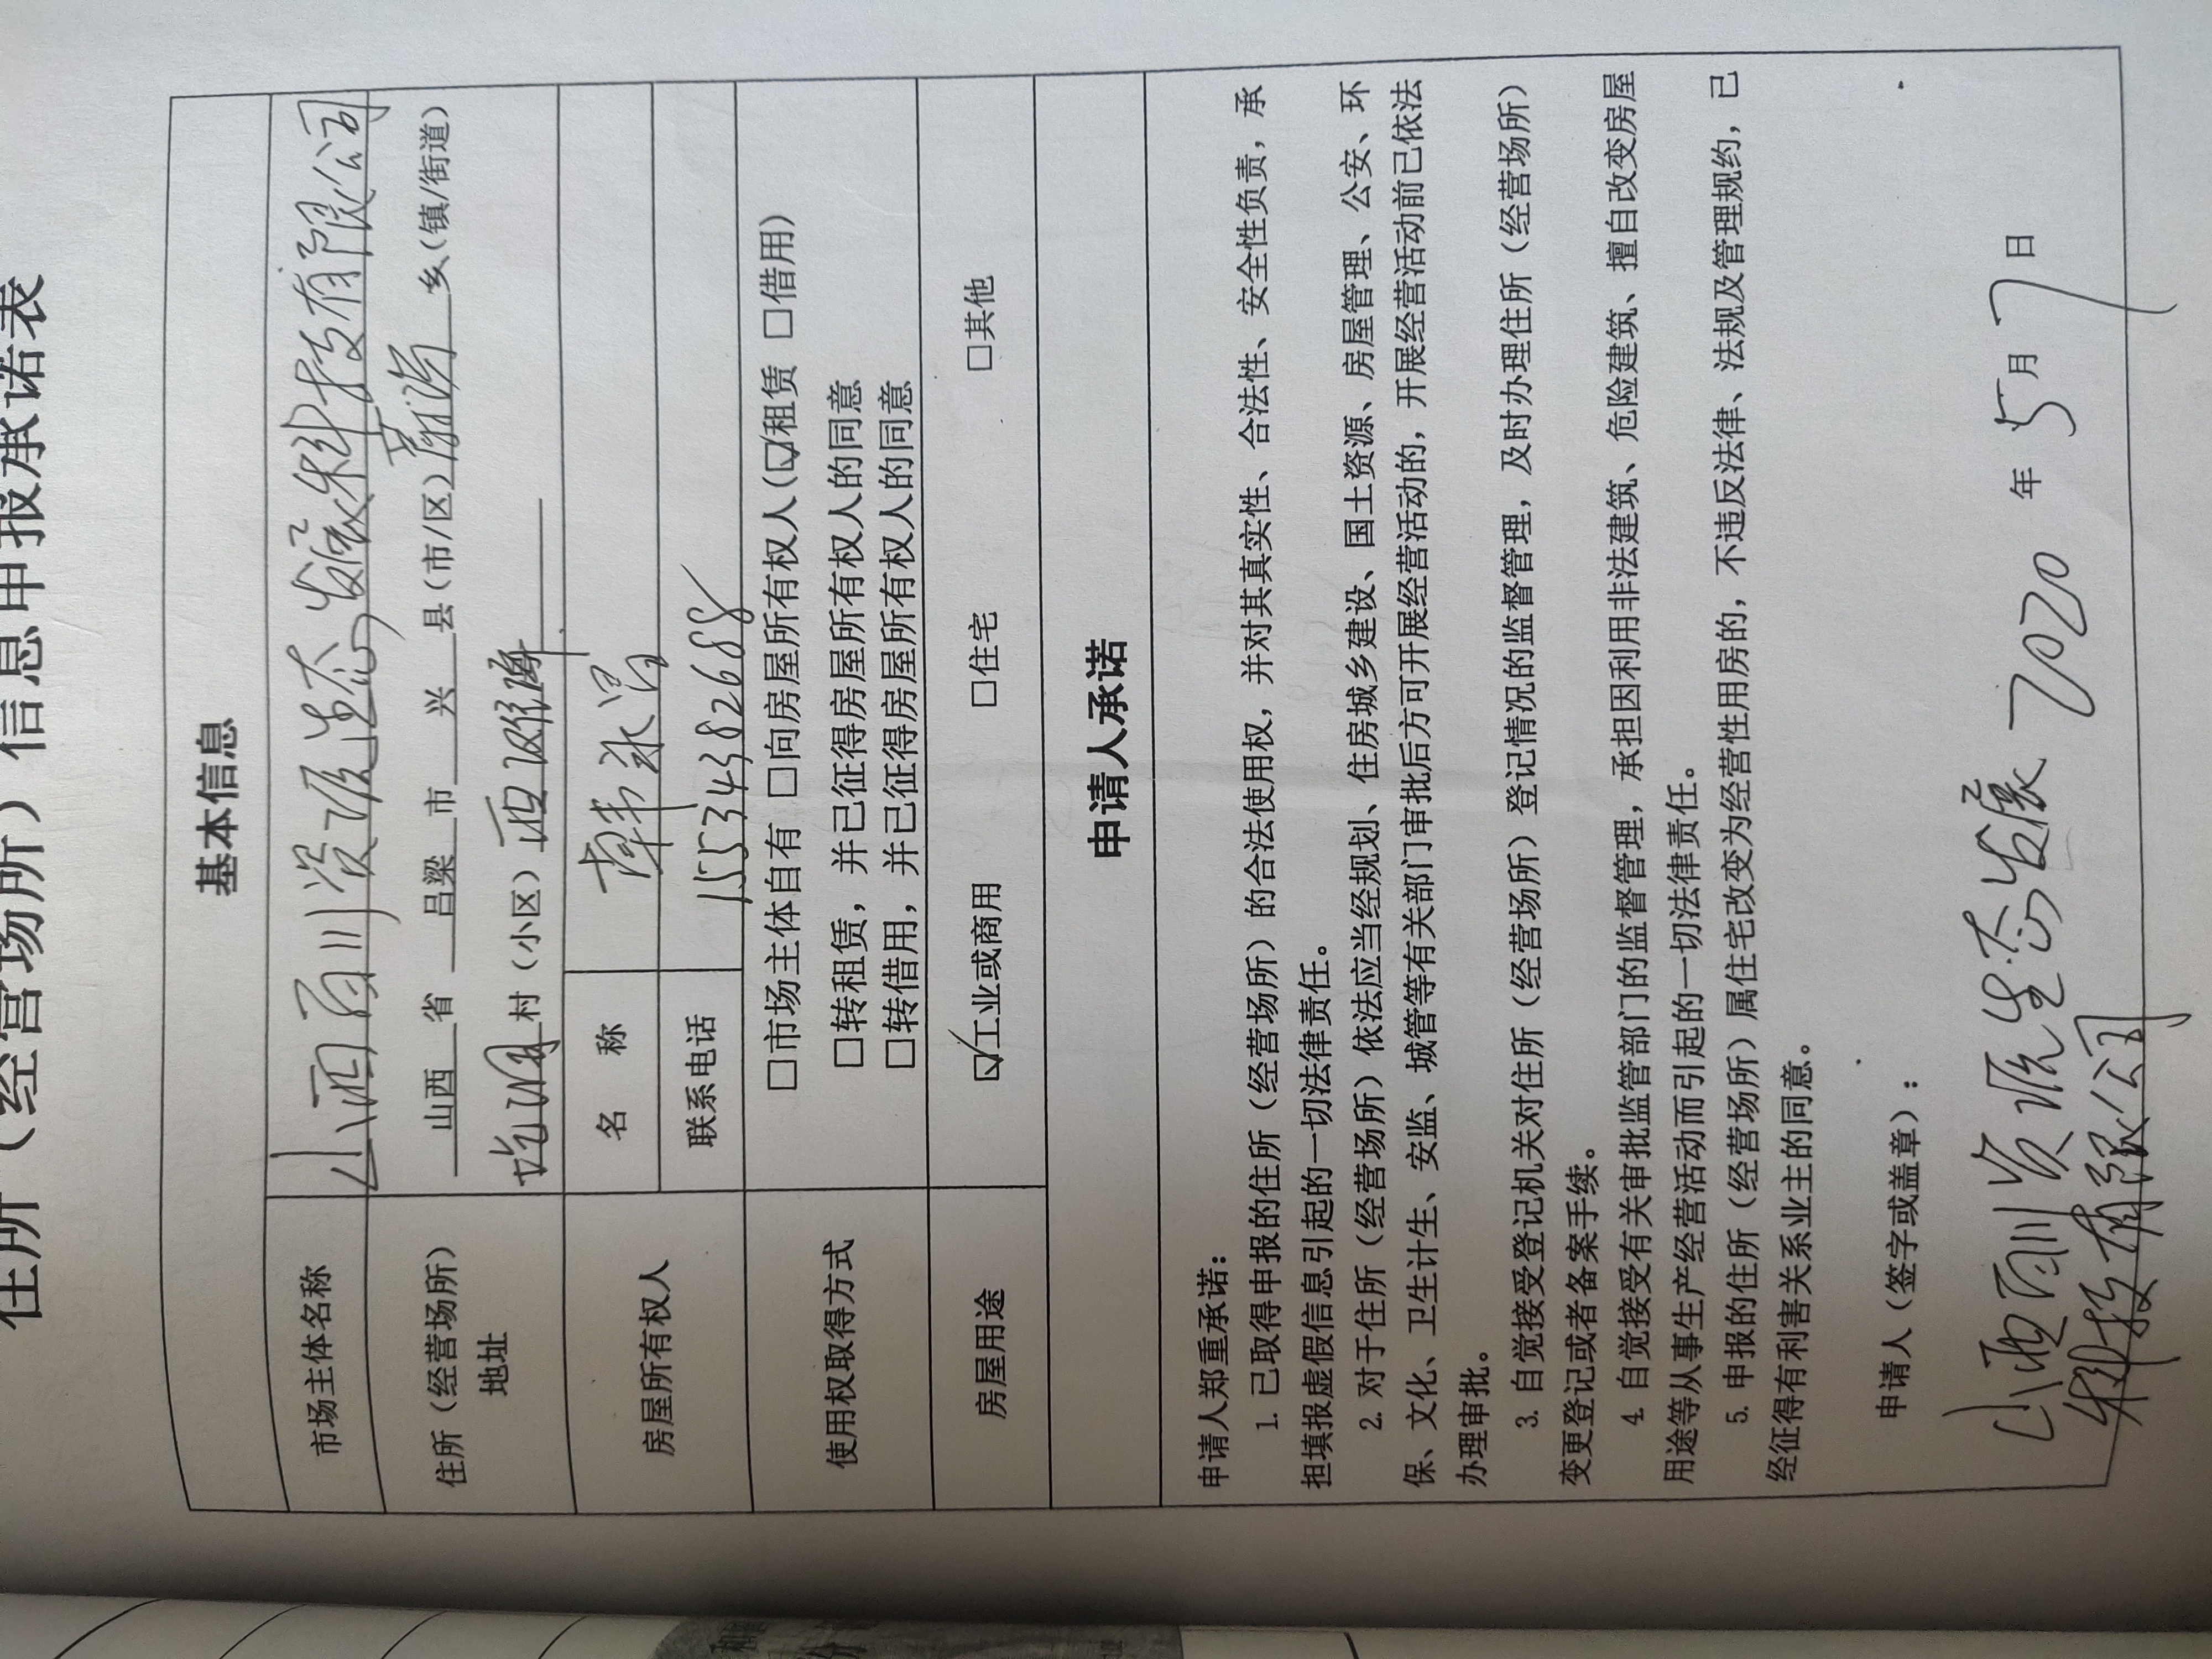 住所（经营场所）信息申报承诺表
基本信息
市场主体名称 山西百川资源生态发展科技有限公司
住所（经营场所）地址 山西省 吕梁市 兴县（市/区） 蔚汾乡（镇/街道）
村（小区）
房屋所有权人 名 称
联系电话 15534382688
使用权取得方式 □市场主体自有 □向房屋所有权人（☑租赁 □借用）
□转租赁，并已征得房屋所有权人的同意
□转借用，并已征得房屋所有权人的同意
房屋用途 ☑工业或商用 □住宅 □其他
申请人承诺
申请人郑重承诺：
1. 已取得申报的住所（经营场所）的合法使用权，并对其真实性、合法性、安全性负责，承
担填报虚假信息引起的一切法律责任。
2. 对于住所（经营场所）依法应当经规划、住房城乡建设、国土资源、房屋管理、公安、环
保、文化、卫生计生、安监、城管等有关部门审批后方可开展经营活动的，开展经营活动前已依法
办理审批。
3. 自觉接受登记机关对住所（经营场所）登记情况的监督管理，及时办理住所（经营场所）
变更登记或者备案手续。
4. 自觉接受有关审批监管部门的监督管理，承担因利用非法建筑、危险建筑、擅自改变房屋
用途等从事生产经营活动而引起的一切法律责任。
5. 申报的住所（经营场所）属住宅改变为经营性用房的，不违反法律、法规及管理规约，已
经征得有利害关系业主的同意。
申请人（签字或盖章）：
山西百川资源生态发展 2020 年 5 月 7 日
科技有限公司